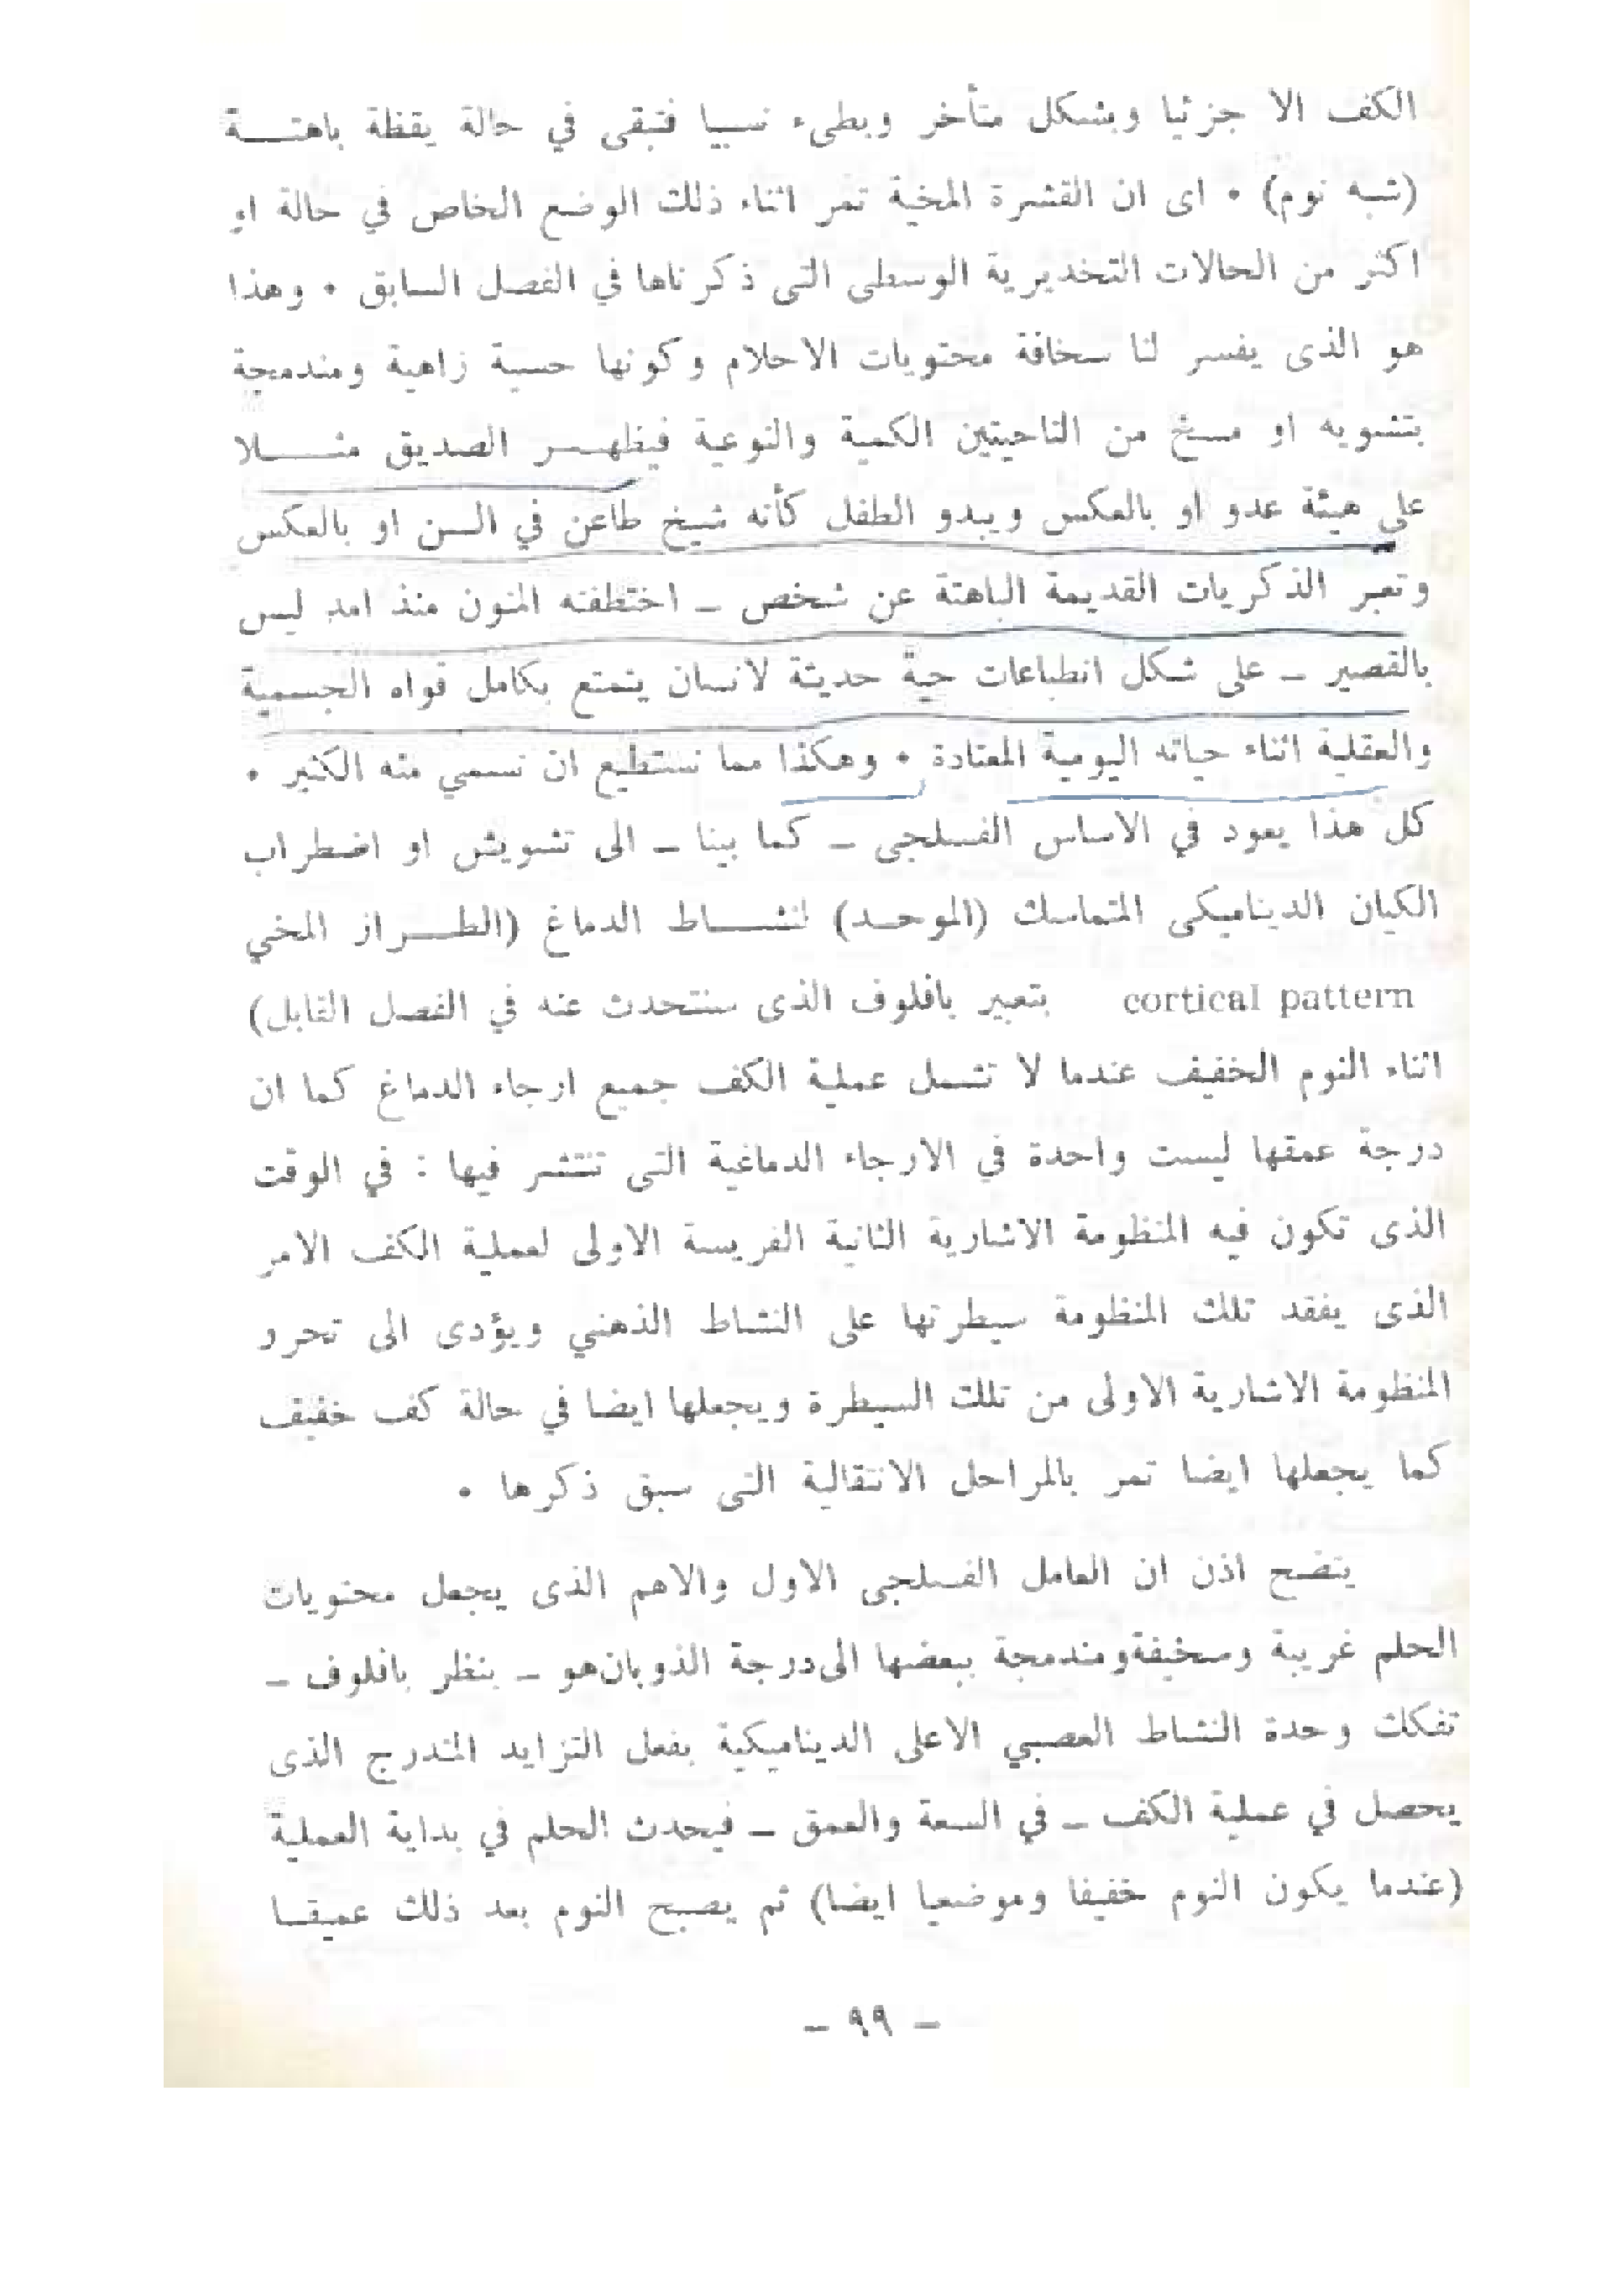 الكف الا جزئيا وبشكل متأخر وبطىء نسبيا فتبقى في حالة يقظة باهتـــة
(شبه نوم) ٠ اى ان القشرة المخية تمر اثناء ذلك الوضع الخاص في حالة او
اكثر من الحالات التخذيرية الوسطى التى ذكرناها في الفصل السابق ٠ وهذا
هو الذى يفسر لنا سخافة محتويات الاحلام وكونها حسية زاهية ومندمجة
بتشويه او مسخ من الناحيتين الكمية والنوعية فيظهـــر الصديق مثـــــلا
على هيئة عدو او بالعكس ويبدو الطفل كأنه شيخ طاعن في السن او بالعكس
وتعبر الذكريات القديمة الباهتة عن شخص ــ اختطفته المنون منذ امد ليس
بالقصير ــ على شكل انطباعات حية حديثة لانسان يتمتع بكامل قواه الجسمية
والعقلية اثناء حياته اليومية المعتادة ٠ وهكذا مما نستطيع ان نسمي منه الكثير ٠
كل هذا يعود في الاساس الفسلجى ــ كما بينا ــ الى تشويش او اضطراب
الكيان الديناميكى المتماسك (الموحــد) لنشـــــاط الدماغ (الطــــراز المخي
cortical pattern بتعبير بافلوف الذى سنتحدث عنه في الفصل القابل)
اثناء النوم الخفيف عندما لا تشمل عملية الكف جميع ارجاء الدماغ كما ان
درجة عمقها ليست واحدة في الارجاء الدماغية التى تنتشر فيها : في الوقت
الذى تكون فيه المنظومة الاشارية الثانية الفريسة الاولى لعملية الكف الامر
الذى يفقد تلك المنظومة سيطرتها على النشاط الذهني ويؤدى الى تحرر
المنظومة الاشارية الاولى من تلك السيطرة ويجعلها ايضا في حالة كف خفيف
كما يجعلها ايضا تمر بالمراحل الانتقالية التى سبق ذكرها ٠
يتضح اذن ان العامل الفسلجى الاول والاهم الذى يجعل محتويات
الحلم غريبة وسخيفة ومندمجة ببعضها الى درجة الذوبان هو ــ بنظر بافلوف ــ
تفكك وحدة النشاط العصبي الاعلى الديناميكية بفعل التزايد المتدرج الذى
يحصل في عملية الكف ــ في السعة والعمق ــ فيحدث الحلم في بداية العملية
(عندما يكون النوم خفيفا وموضعيا ايضا) ثم يصبح النوم بعد ذلك عميقــا
ــ ٩٩ ــ